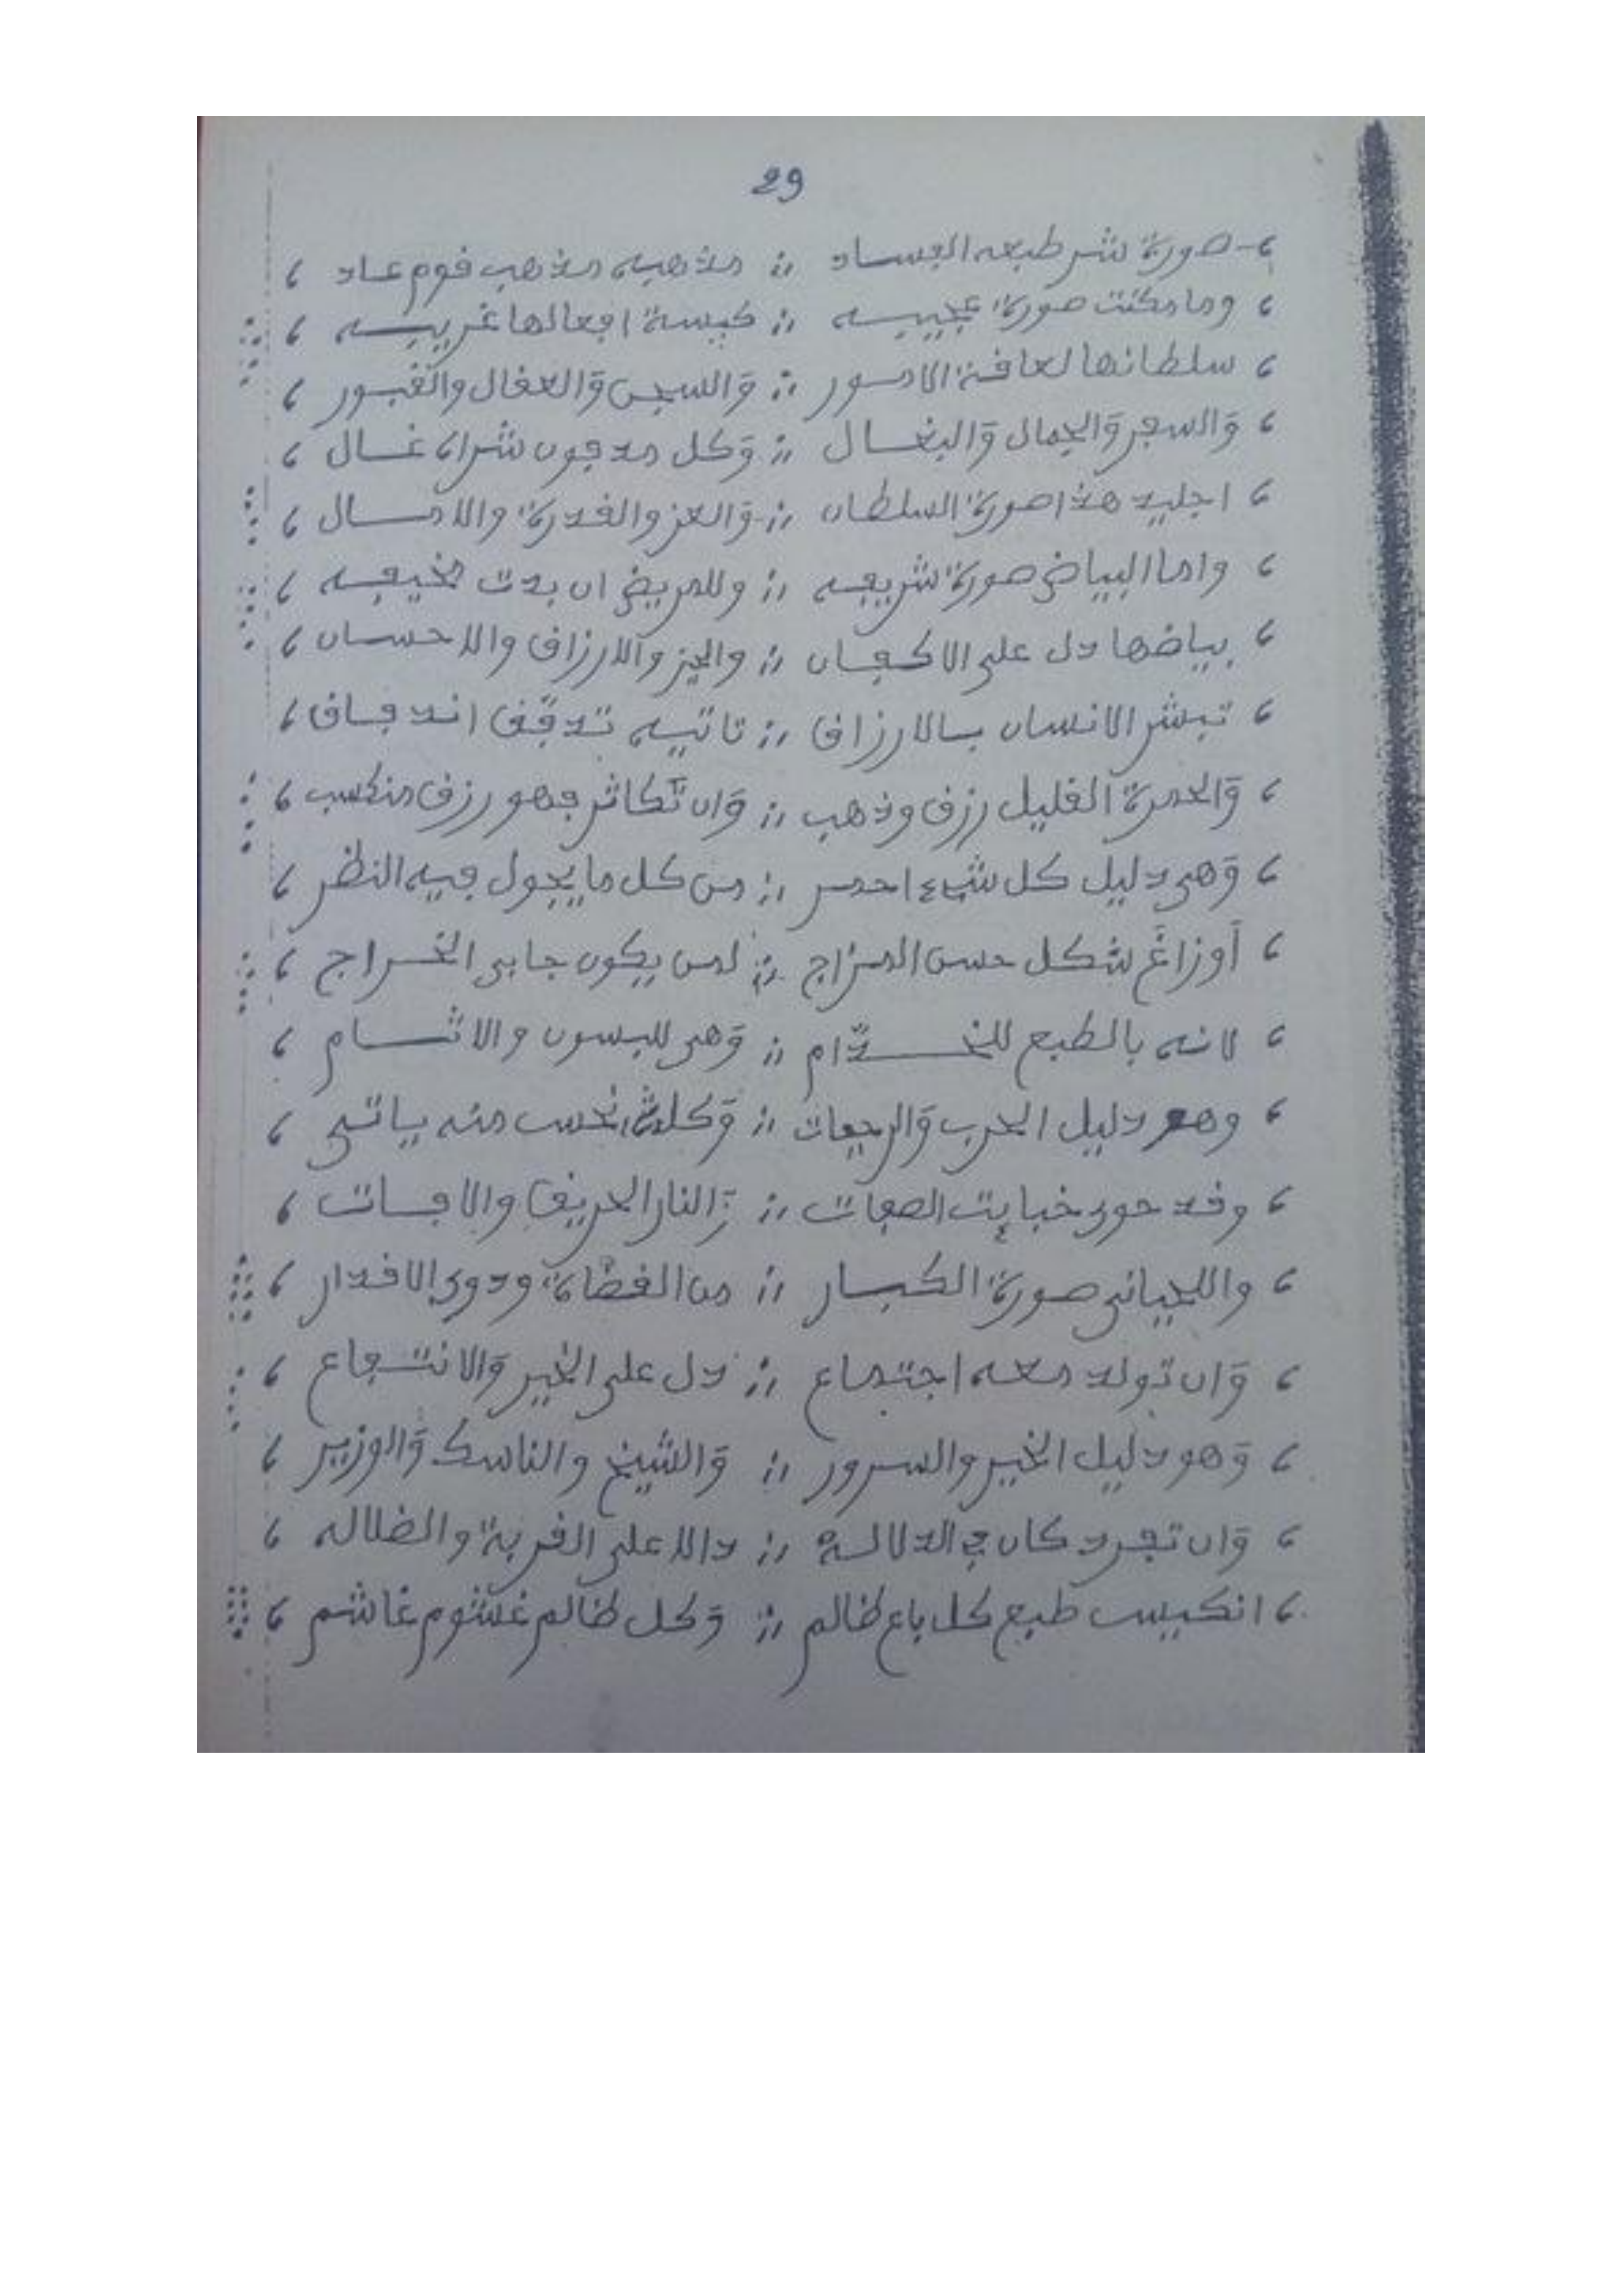 29
صورة شر طبعه الفساد :: مذهبه مذهب قوم عاد
وما مكنت صورة عجيبه :: كبيسة افعالها غريبه
سلطانها لعاقة الامور :: وَالسجن وَالعقال والقبور
وَالسفر وَالجمال وَالبغال :: وَكل مدفون شراء غال
اجليد هذا صورة السلطان :: وَالعز والقدرة والامسال
واما البياض صورة شريفه :: وللمريض ان بدت مخيفه
بياضها دل على الاكفان :: والخبز وَالارزاق والاحسان
تبشر الانسان بالارزاق :: تاتيه تدفّق اندفاق
وَالحمرة القليل رزق وذهب :: وَان تكاثر فهو رزق منكسب
وَهى دليل كل شيء احمر :: من كل ما يجول فيه النظر
أوزاغ شكل حسن المزاج :: لمن يكون جابى الخراج
لانه بالطبع للخدّام :: وَهى للبسون والاثام
وهو دليل الحرب وَالرجعات :: وَكل نحس منه ياتى
وقد حوى خبايت الصفات :: النار الحريق والافات
واللحيانى صورة الكبار :: من القضاة وذوى الاقدار
وَان تولد معه اجتماع :: دل على الخير وَالانتجاع
وَهو دليل الخير والسرور :: وَالشيخ والناسك وَالوزير
وَان تفرد كان في الدلالة :: دالا على الغربة والضلاله
انكيس طبع كل باغ ظالم :: وَكل ظالم غشوم غاشم